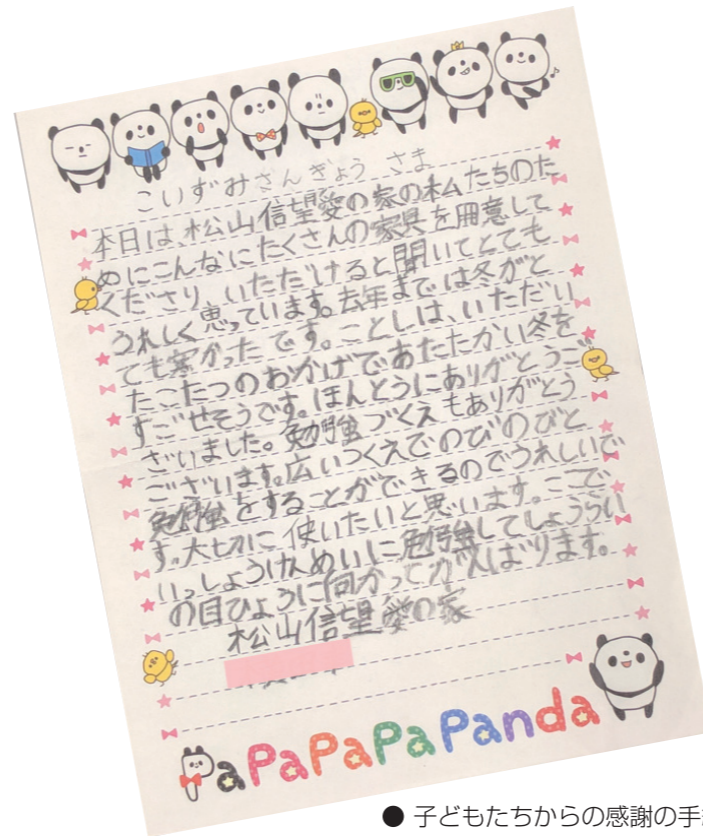 こいずみさんぎょう さま
本日は、松山信望愛の家の私たちのた
めにこんなにたくさんの家具を用意して
くださり、いただけると聞いてとても
うれしく思っています。去年までは冬がと
ても寒かったです。ことしは、いただい
たこたつのおかげであたたかい冬を
すごせそうです。ほんとうにありがとうご
ざいました。勉強づくえもありがとう
ございます。広いつくえでのびのびと
勉強をすることができるのでうれしいで
す。大切に使いたいと思います。ここで
いっしょうけんめいに勉強してしょうらい
の目ひょうに向かってがんばります。
松山信望愛の家
PaPaPaPaPanda
● 子どもたちからの感謝の手